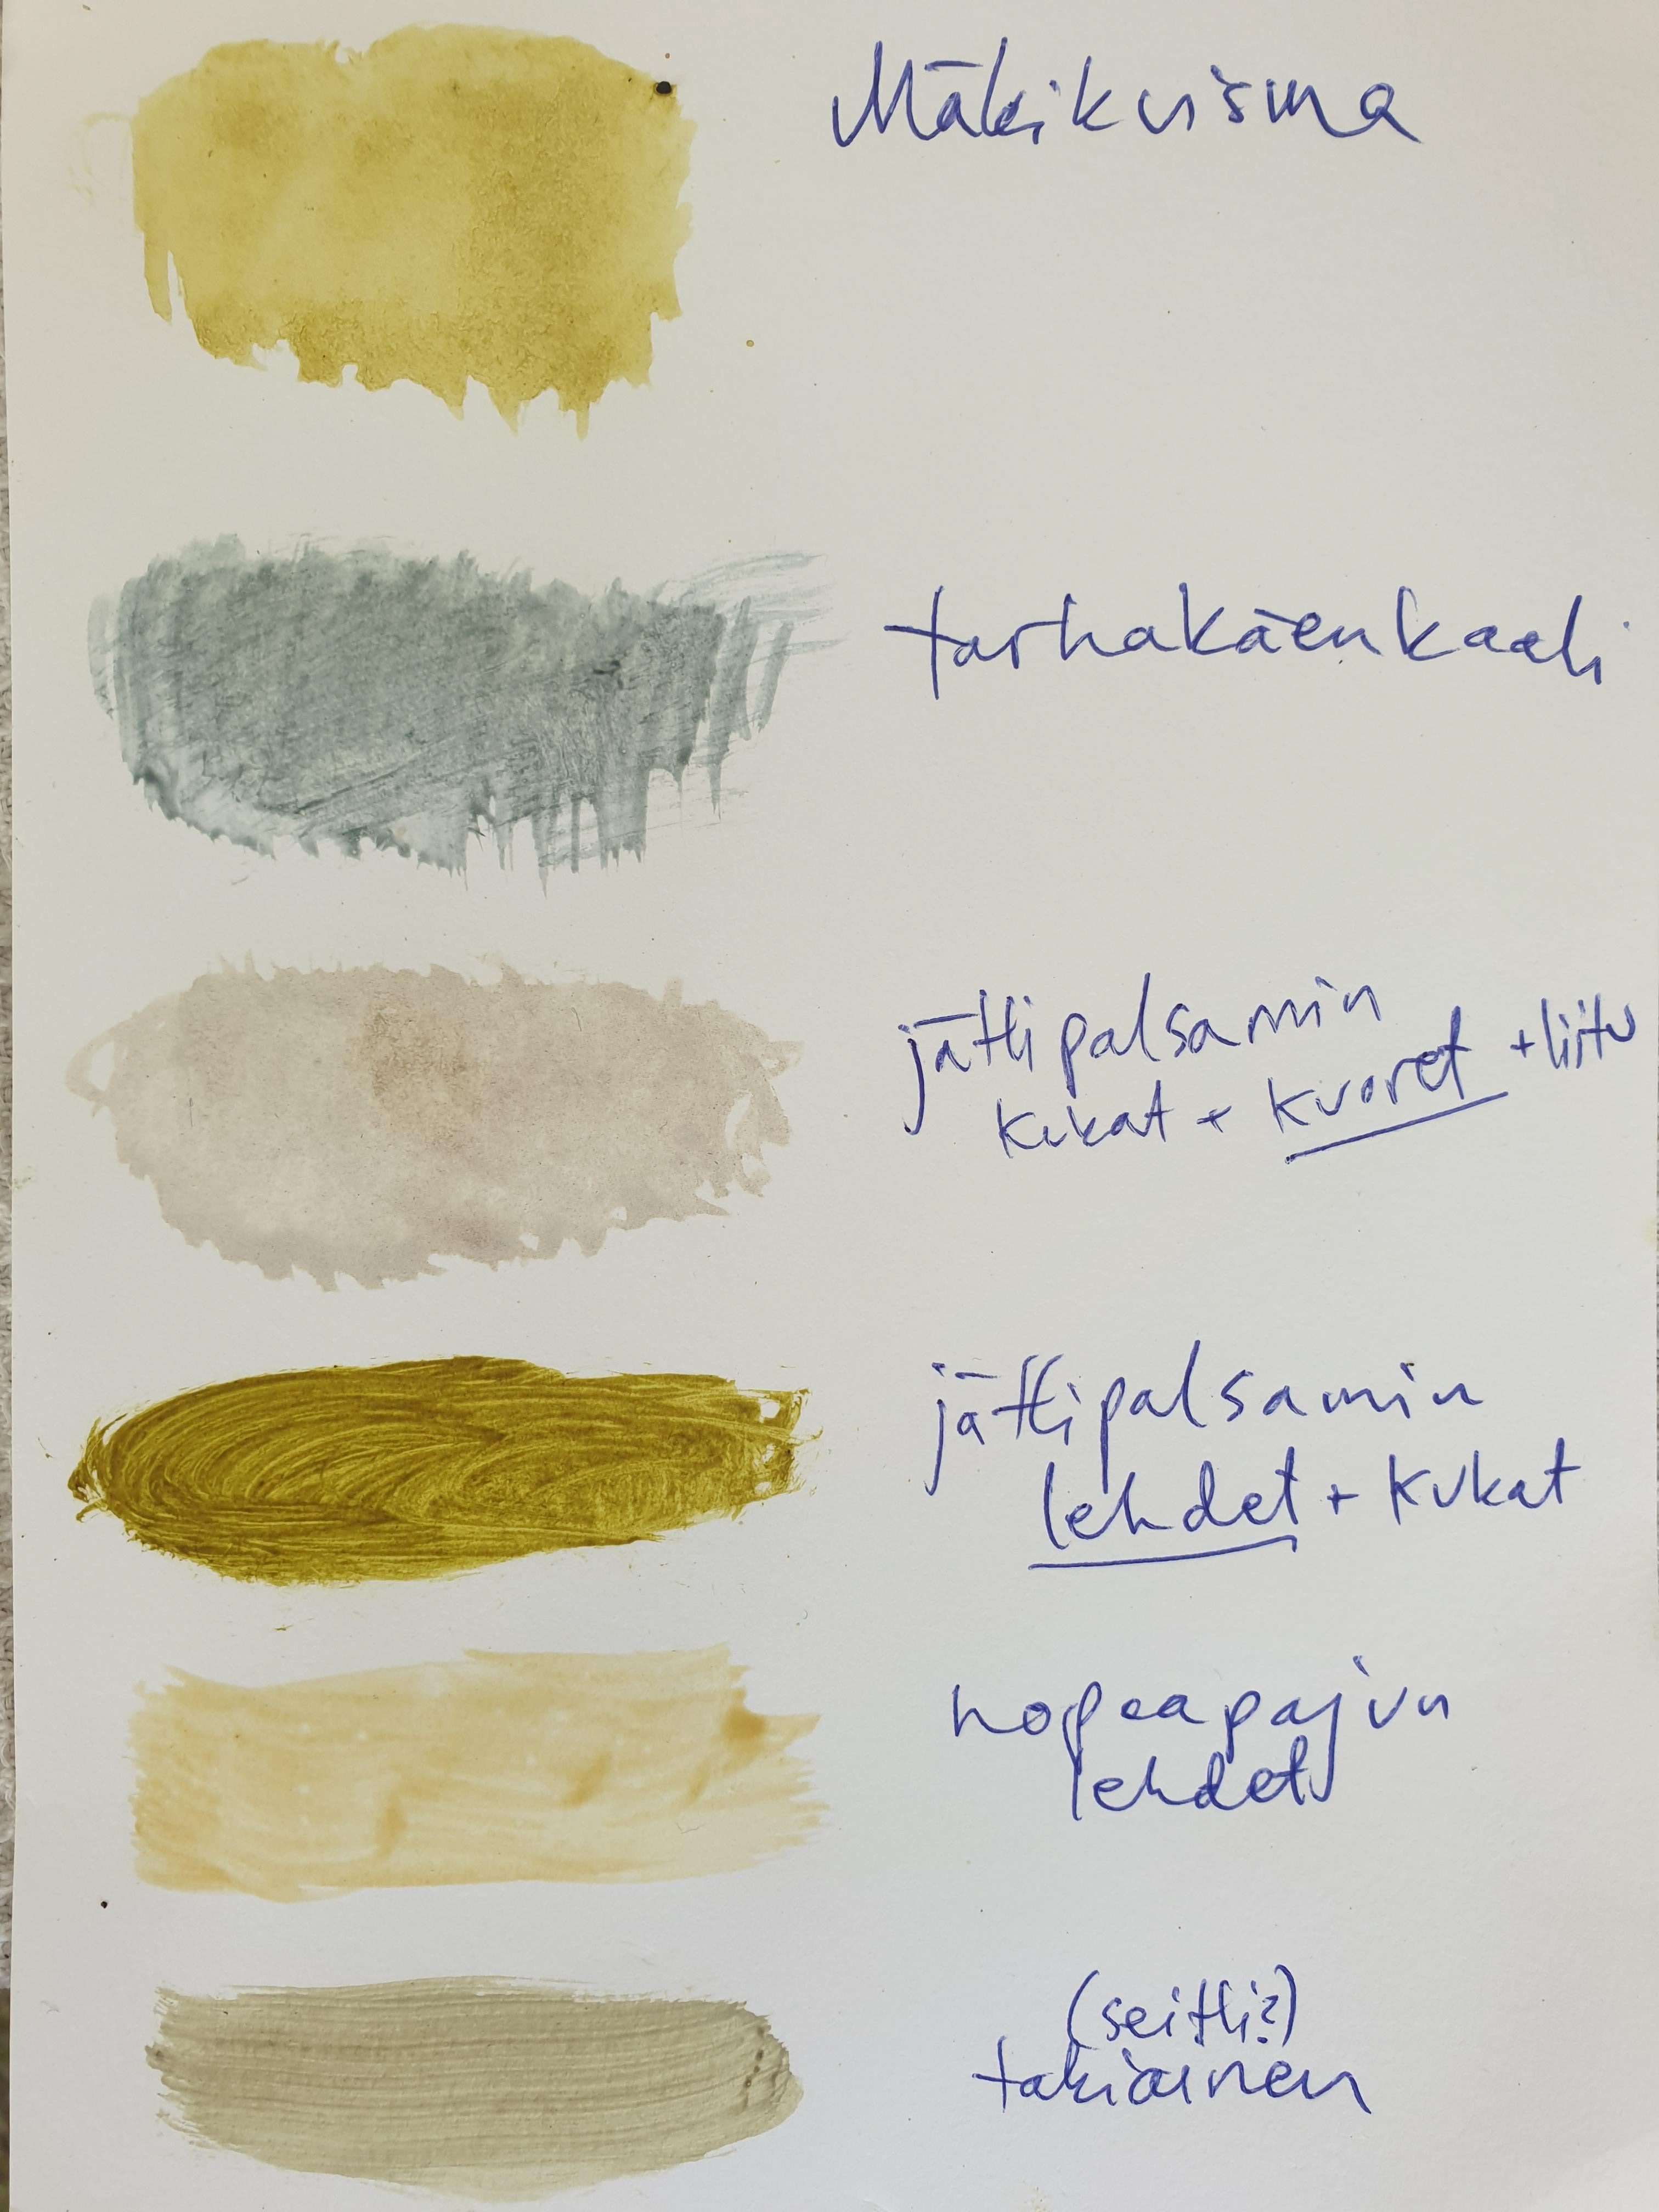 Mäkikuisma
tarhakäenkaali
jättipalsamin
kukat + kuoret + liitu
jättipalsamin
lehdet + kukat
hopeapajun
lehdet
(seitti?)
takiainen